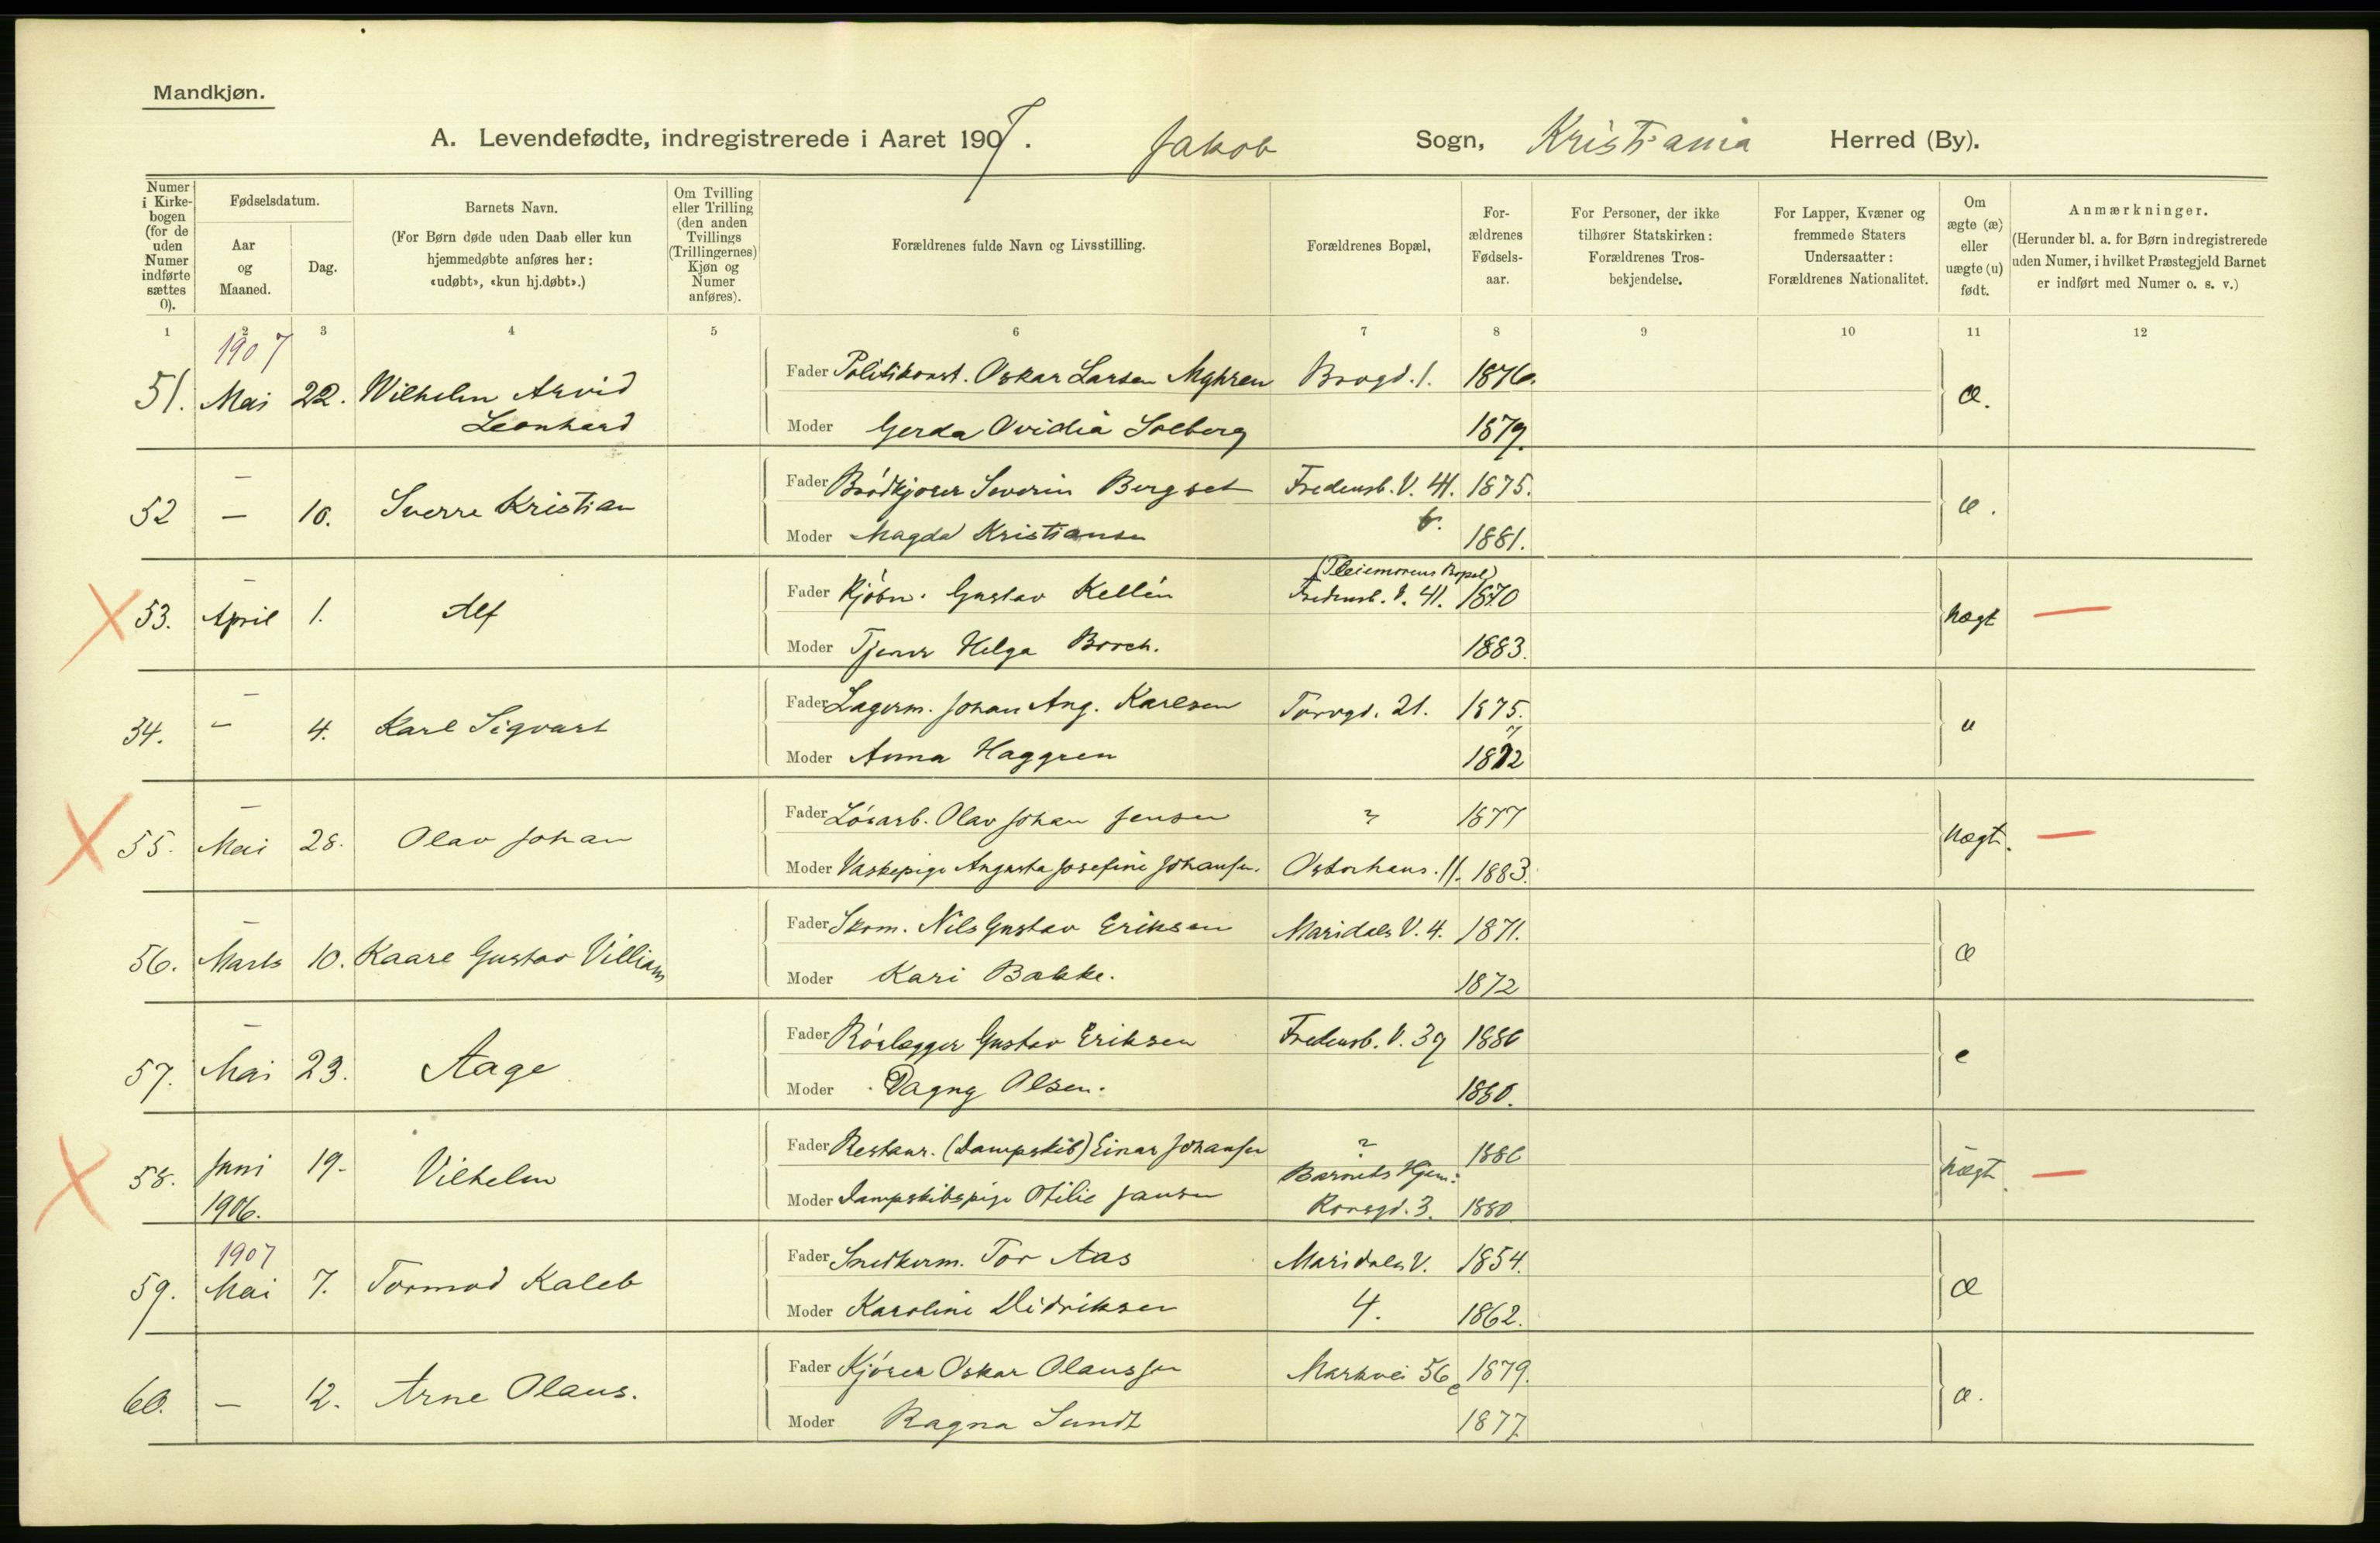 Mandkjøn.
A. Levendefødte, indregistrerede i Aaret 1907. Jakob Sogn, Kristiania Herred (By).
Numer i Kirke-bogen (for de uden Numer indførte sættes 0).
Fødselsdatum.
Aar og Maaned.
Dag.
Barnets Navn.
(For Børn døde uden Daab eller kun hjemmedøbte anføres her: «udøbt», «kun hj.døbt».)
Om Tvilling eller Trilling (den anden Tvillings (Trillingernes) Kjøn og Numer anføres).
Forældrenes fulde Navn og Livsstilling.
Forældrenes Bopæl,
For-ældrenes Fødsels-aar.
For Personer, der ikke tilhører Statskirken: Forældrenes Tros-bekjendelse.
For Lapper, Kvæner og fremmede Staters Undersaatter: Forældrenes Nationalitet.
Om ægte (æ) eller uægte (u) født.
Anmærkninger.
(Herunder bl. a. for Børn indregistrerede uden Numer, i hvilket Præstegjeld Barnet er indført med Numer o. s. v.)
1 2 3 4 5 6 7 8 9 10 11 12
1907
51. Mai 22. Wilhelm Arvid Leonhard
Fader Politikonst. Oskar Larsen Myhren Brogd. 1. 1876. æ.
Moder Gerda Ovidia Solberg 1879.
52 — — 10. Sverre Kristian
Fader Brödkjörer Severin Bergset Fredensb. V. 41. 1875. æ.
Moder Magda Kristiansen b. 1881.
53. — April 1. Alf
Fader Kjöbm. Gustav Kellén (Pleiemorens Bopel) Fredensb. V. 41. 1870 uægt —
Moder Tjener Helga Borch. 1883.
54. — — 4. Karl Sigvart
Fader Lagerm. Johan Aug. Karlsen Torvgd. 21. 1875. æ
Moder Anna Haggren 1872
55. — Mai 28. Olav Johan
Fader Lösarb. Olav Johan Jensen ? 1877 uægt. —
Moder Vaskepige Augusta Josefine Johansen. Osterhaus. 11. 1883.
56. — Marts 10. Kaare Gustav Villiam
Fader Skom. Nils Gustav Eriksen Maridals V. 4. 1871. æ
Moder Kari Bakke. 1872
57. — Mai 23. Aage
Fader Rörlægger Gustav Eriksen Fredensb. V. 39 1886 æ
Moder Dagny Olsen. 1880.
58. Juni 1906. 19. Vilhelm
Fader Restaur. (Dampskib) Einar Johansen ? 1886 uægt. —
Moder Dampskibspige Otilie Jansen Barnets Hjem: Korsgd. 3. 1880
1907
59. Mai 7. Tormod Kaleb
Fader Snedkerm. Tor Aas Maridals V. 1854. æ
Moder Karoline Didriksen 4. 1862.
60. — 12. Arne Olaus.
Fader Kjörer Oskar Olaussen Markvei 56 c 1879. æ.
Moder Ragna Sundt 1877.